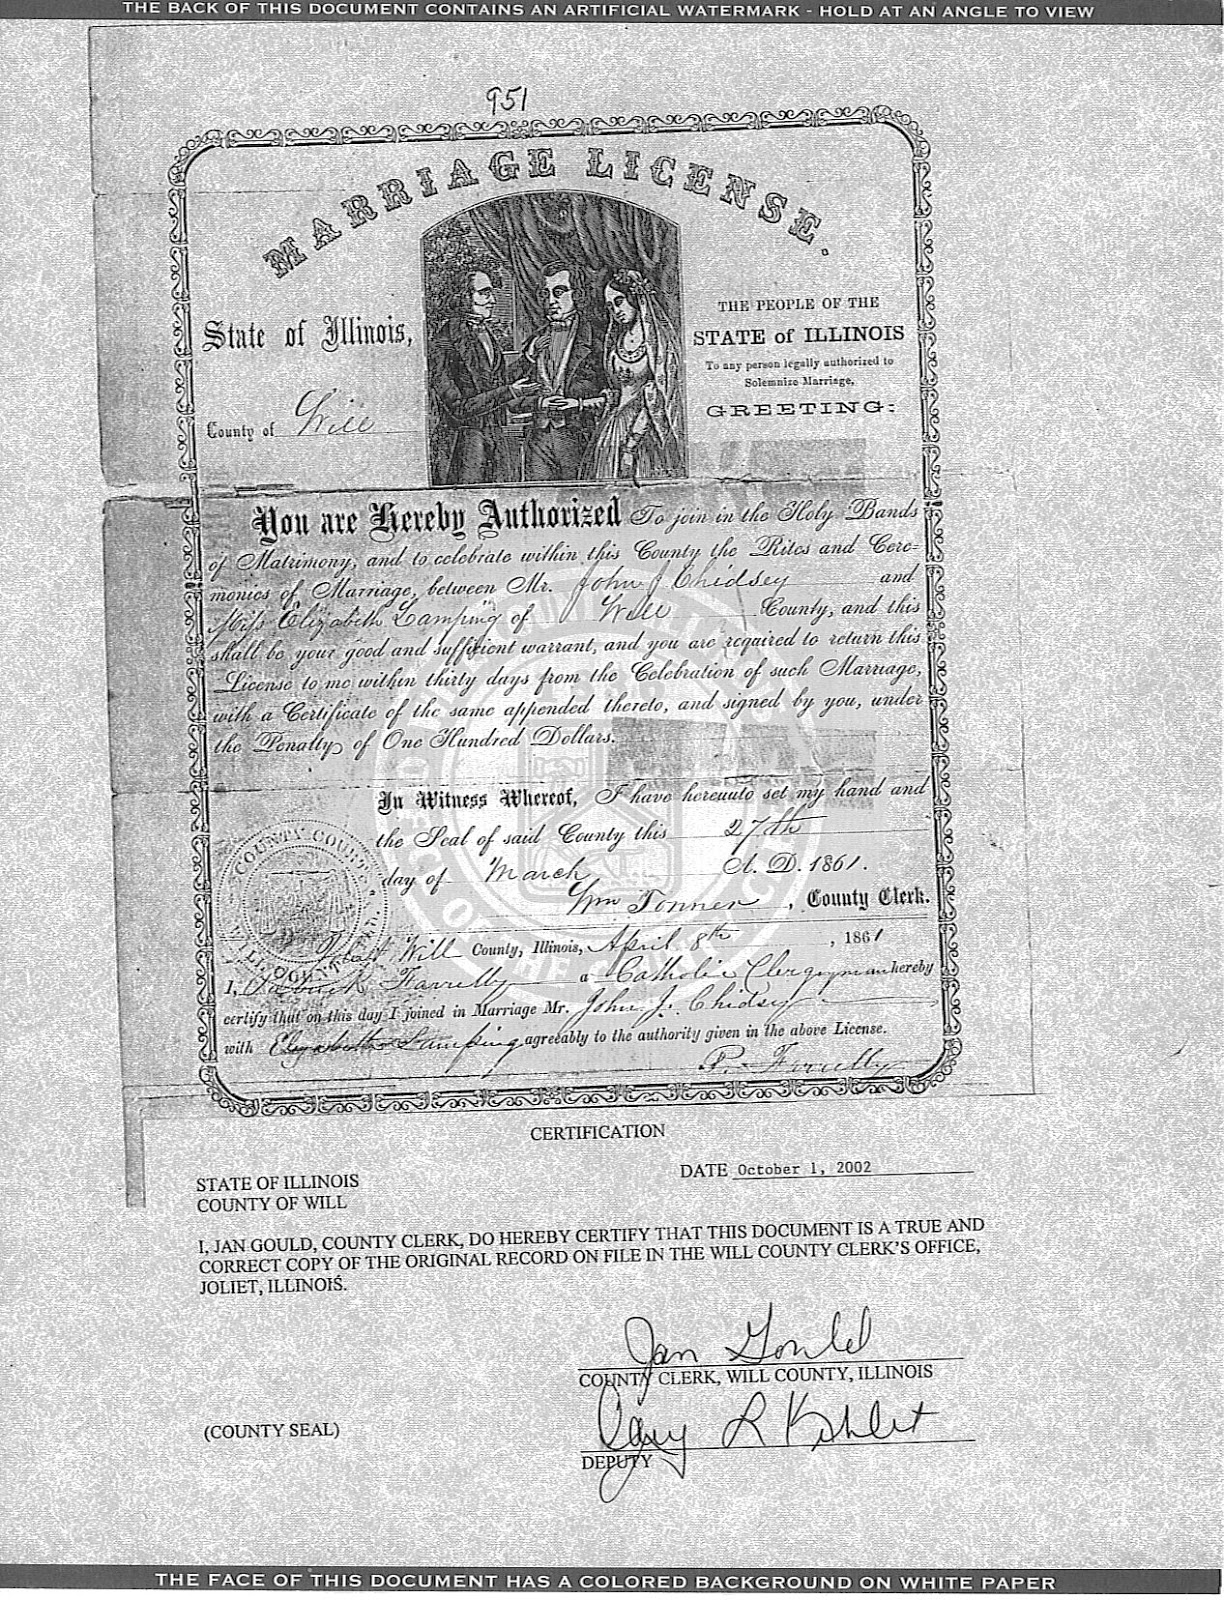 THE BACK OF THIS DOCUMENT CONTAINS AN ARTIFICIAL WATERMARK - HOLD AT AN ANGLE TO VIEW
951
MARRIAGE LICENSE.
State of Illinois,
County of Will
THE PEOPLE OF THE
STATE of ILLINOIS
To any person legally authorized to
Solemnize Marriage,
GREETING:
You are Hereby Authorized To join in the Holy Bands
of Matrimony, and to celebrate within this County the Rites and Cere-
monies of Marriage, between Mr. John J. Chidsey and
Miss Elizabeth Lamping of Will County, and this
shall be your good and sufficient warrant, and you are required to return this
License to me within thirty days from the Celebration of such Marriage,
with a Certificate of the same appended thereto, and signed by you, under
the Penalty of One Hundred Dollars.
In Witness Whereof, I have hereunto set my hand and
the Seal of said County this 27th
day of March A. D. 1861.
Wm Tonner, County Clerk.
Will County, Illinois, April 8th, 1861
I, Patrick Farrelly a Catholic Clergyman hereby
certify that on this day I joined in Marriage Mr. John J. Chidsey
with Elizabeth Lamping agreeably to the authority given in the above License.
P. Farrelly
CERTIFICATION
DATE October 1, 2002
STATE OF ILLINOIS
COUNTY OF WILL
I, JAN GOULD, COUNTY CLERK, DO HEREBY CERTIFY THAT THIS DOCUMENT IS A TRUE AND
CORRECT COPY OF THE ORIGINAL RECORD ON FILE IN THE WILL COUNTY CLERK'S OFFICE,
JOLIET, ILLINOIS.
Jan Gould
COUNTY CLERK, WILL COUNTY, ILLINOIS
(COUNTY SEAL)
DEPUTY
THE FACE OF THIS DOCUMENT HAS A COLORED BACKGROUND ON WHITE PAPER